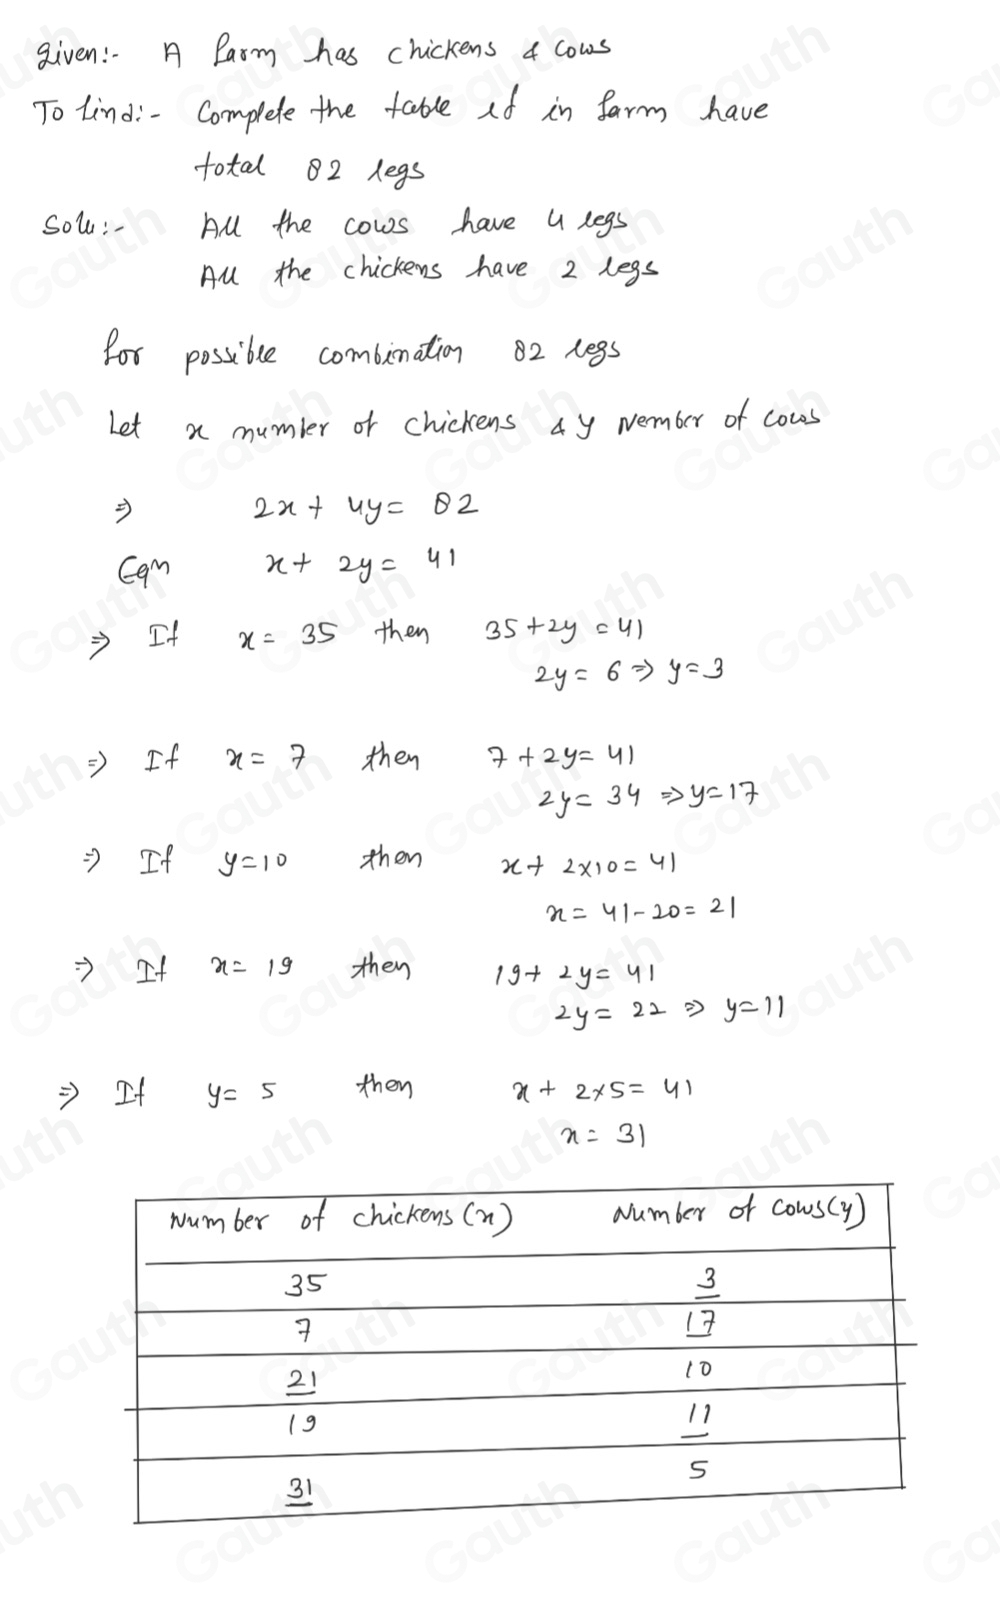 Given:- A farm has chickens & cows
To find:- Complete the table if in farm have
total 82 legs
Solu:- All the cows have 4 legs
All the chickens have 2 legs
for possible combination 82 legs
Let x number of chickens & y Nember of cows
⇒ 2x + 4y = 82
Eqn x + 2y = 41
⇒ If x = 35 then 35 + 2y = 41
2y = 6 ⇒ y = 3
⇒ If x = 7 then 7 + 2y = 41
2y = 34 ⇒ y = 17
⇒ If y = 10 then x + 2×10 = 41
x = 41 - 20 = 21
⇒ If x = 19 then 19 + 2y = 41
2y = 22 ⇒ y = 11
⇒ If y = 5 then x + 2×5 = 41
x = 31
Number of chickens (x) Number of cows (y)
35 3
7 17
21 10
19 11
31 5
Gauth